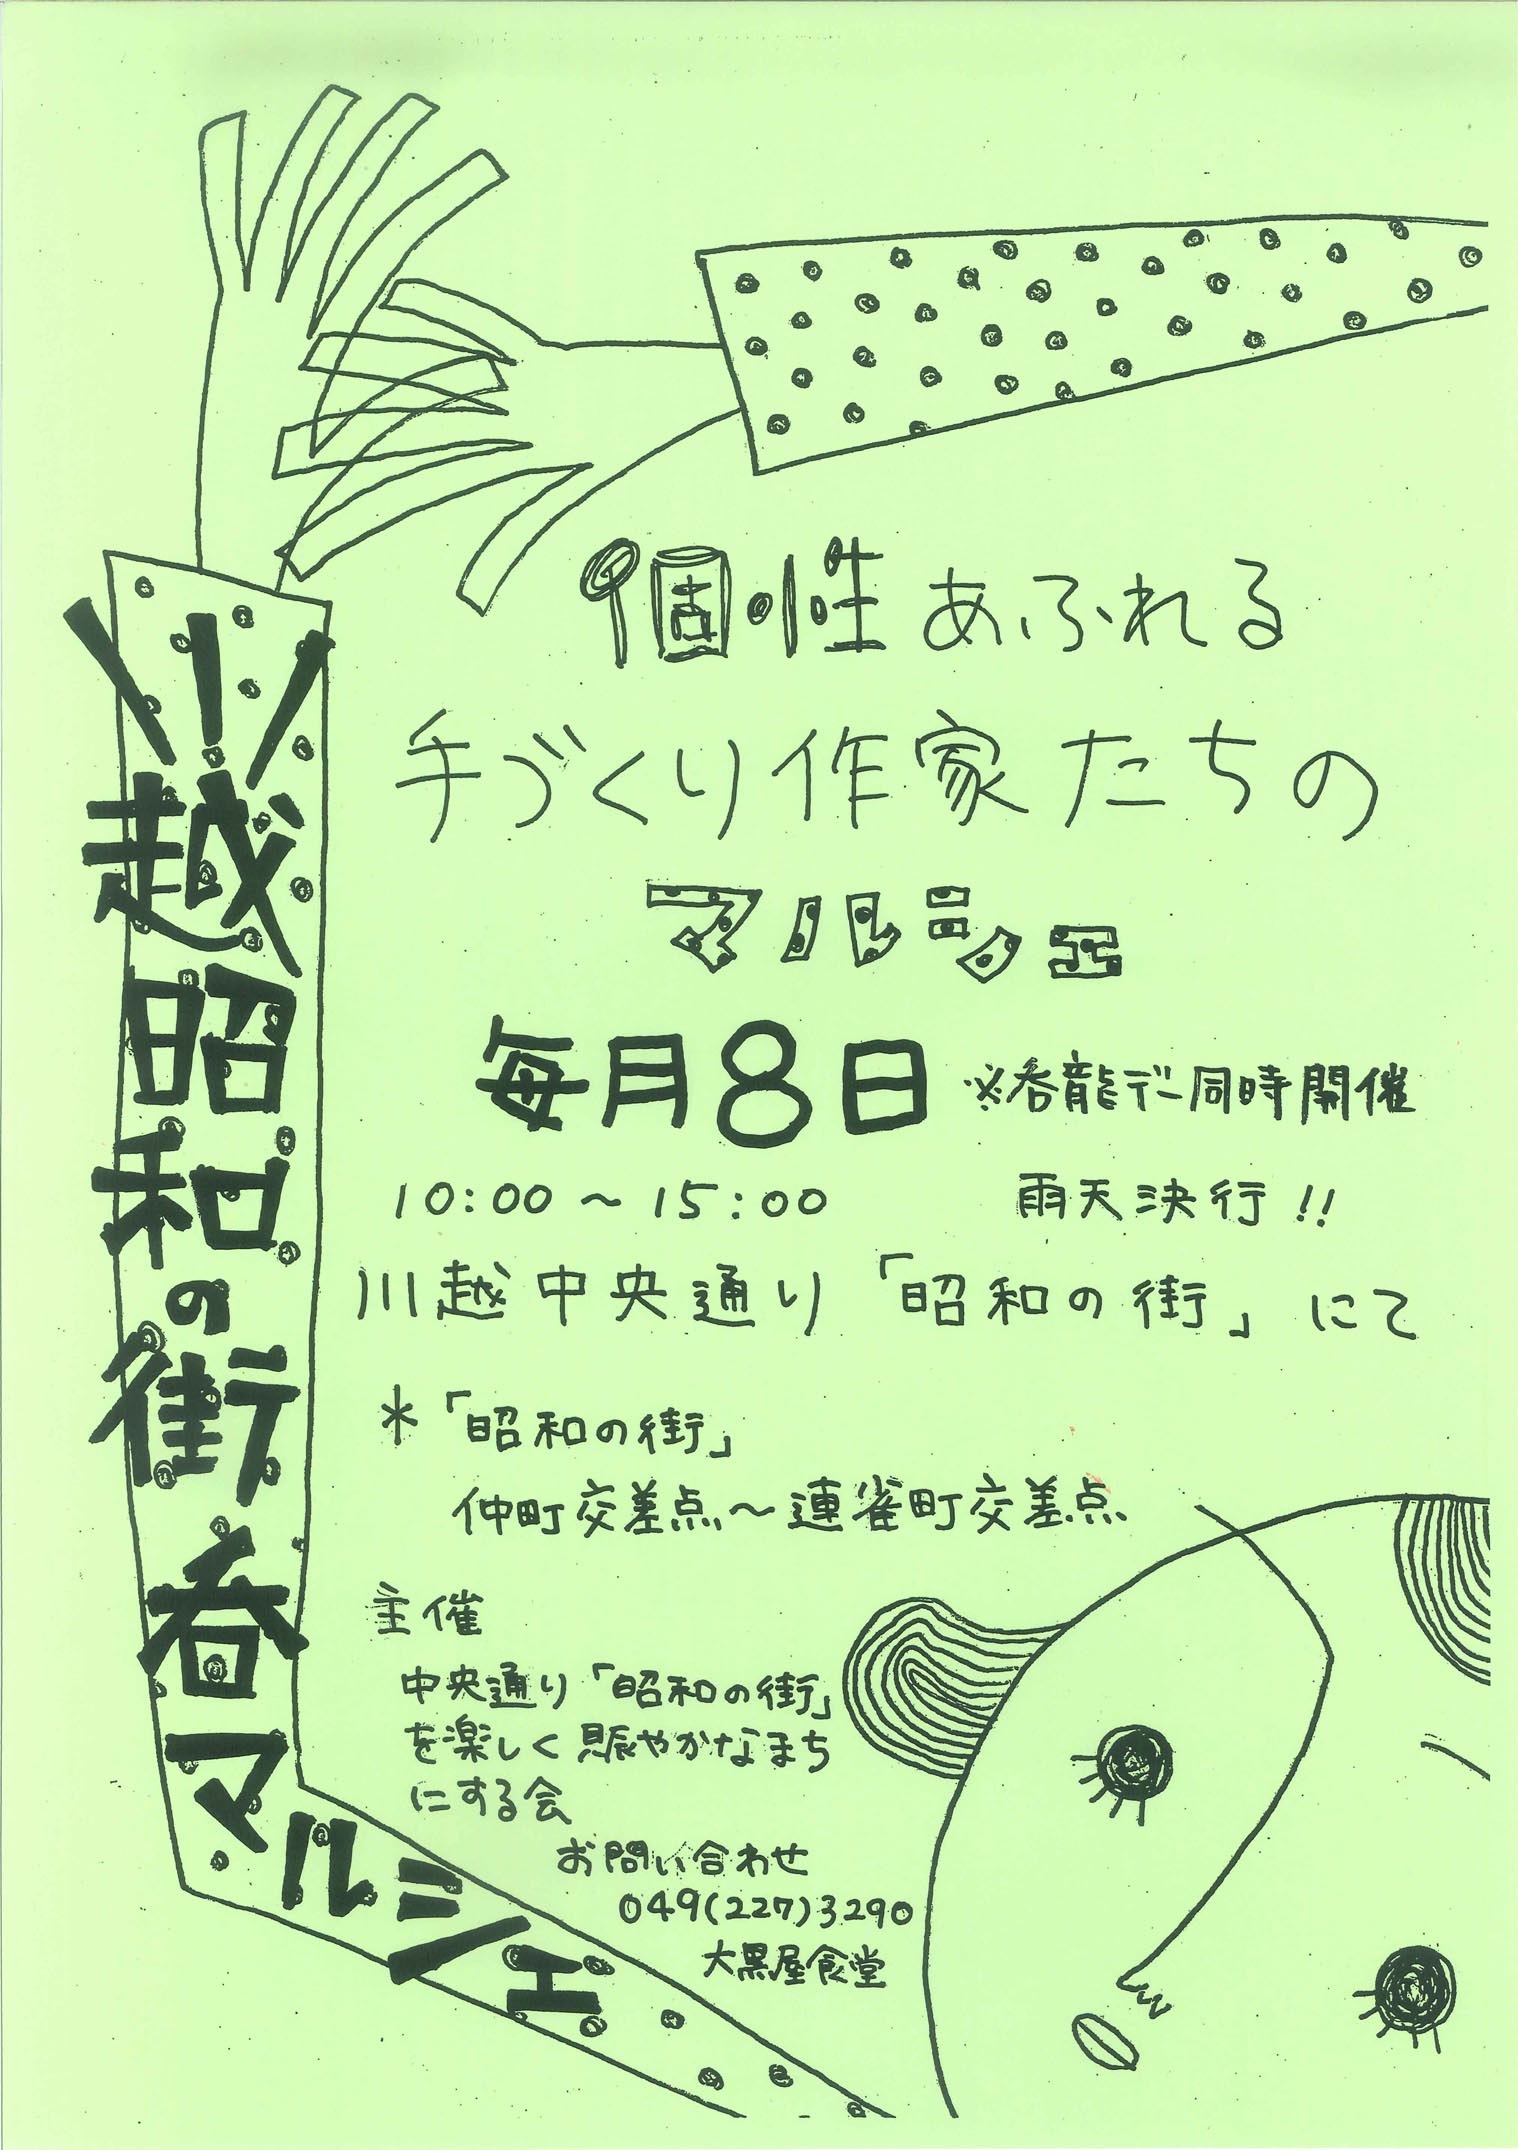 川越昭和の街呑マルシェ
個性あふれる
手づくり作家たちの
マルシェ
毎月8日 ※呑龍デー同時開催
10:00～15:00 雨天決行!!
川越中央通り「昭和の街」にて
＊「昭和の街」
仲町交差点～連雀町交差点
主催
中央通り「昭和の街」
を楽しく賑やかなまち
にする会
お問い合わせ
049(227)3290
大黒屋食堂